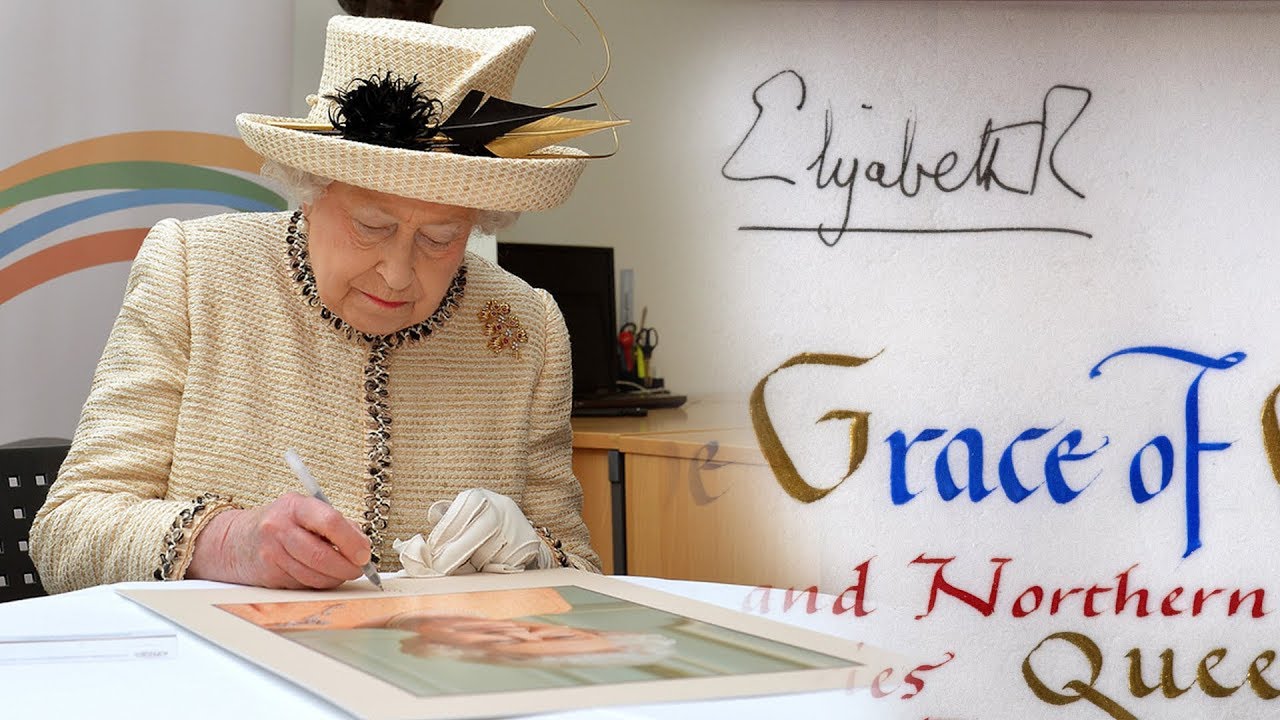 Elizabeth R
Grace of
and Northern
ies Quee